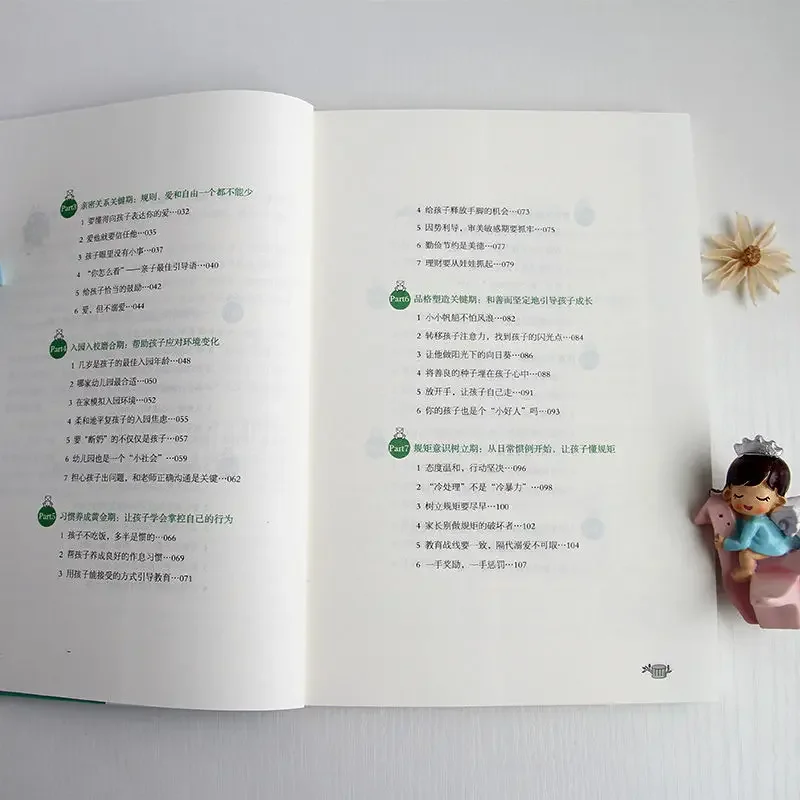 Part3 亲密关系关键期：规则、爱和自由一个都不能少
1 要懂得向孩子表达你的爱…032
2 爱他就要信任他…035
3 孩子眼里没有小事…037
4 “你怎么看”——亲子最佳引导语…040
5 给孩子恰当的鼓励…042
6 爱，但不溺爱…044
Part4 入园入校磨合期：帮助孩子应对环境变化
1 几岁是孩子的最佳入园年龄…048
2 哪家幼儿园最合适…050
3 在家模拟入园环境…052
4 柔和地平复孩子的入园焦虑…055
5 要“断奶”的不仅仅是孩子…057
6 幼儿园也是一个“小社会”…059
7 担心孩子出问题，和老师正确沟通是关键…062
Part5 习惯养成黄金期：让孩子学会掌控自己的行为
1 孩子不吃饭，多半是惯的…066
2 帮孩子养成良好的作息习惯…069
3 用孩子能接受的方式引导教育…071
4 给孩子释放手脚的机会…073
5 因势利导，审美敏感期要抓牢…075
6 勤俭节约是美德…077
7 理财要从娃娃抓起…079
Part6 品格塑造关键期：和善而坚定地引导孩子成长
1 小小帆船不怕风浪…082
2 转移孩子注意力，找到孩子的闪光点…084
3 让他做阳光下的向日葵…086
4 将善良的种子埋在孩子心中…088
5 放开手，让孩子自己走…091
6 你的孩子也是个“小好人”吗…093
Part7 规矩意识树立期：从日常惯例开始，让孩子懂规矩
1 态度温和，行动坚决…096
2 “冷处理”不是“冷暴力”…098
3 树立规矩要尽早…100
4 家长别做规矩的破坏者…102
5 教育战线要一致，隔代溺爱不可取…104
6 一手奖励，一手惩罚…107